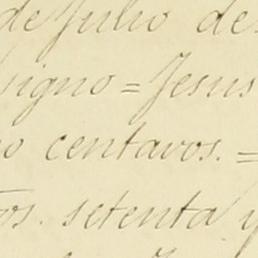 de Julio de
signo = Jesus
o centavos. =
os. setenta y